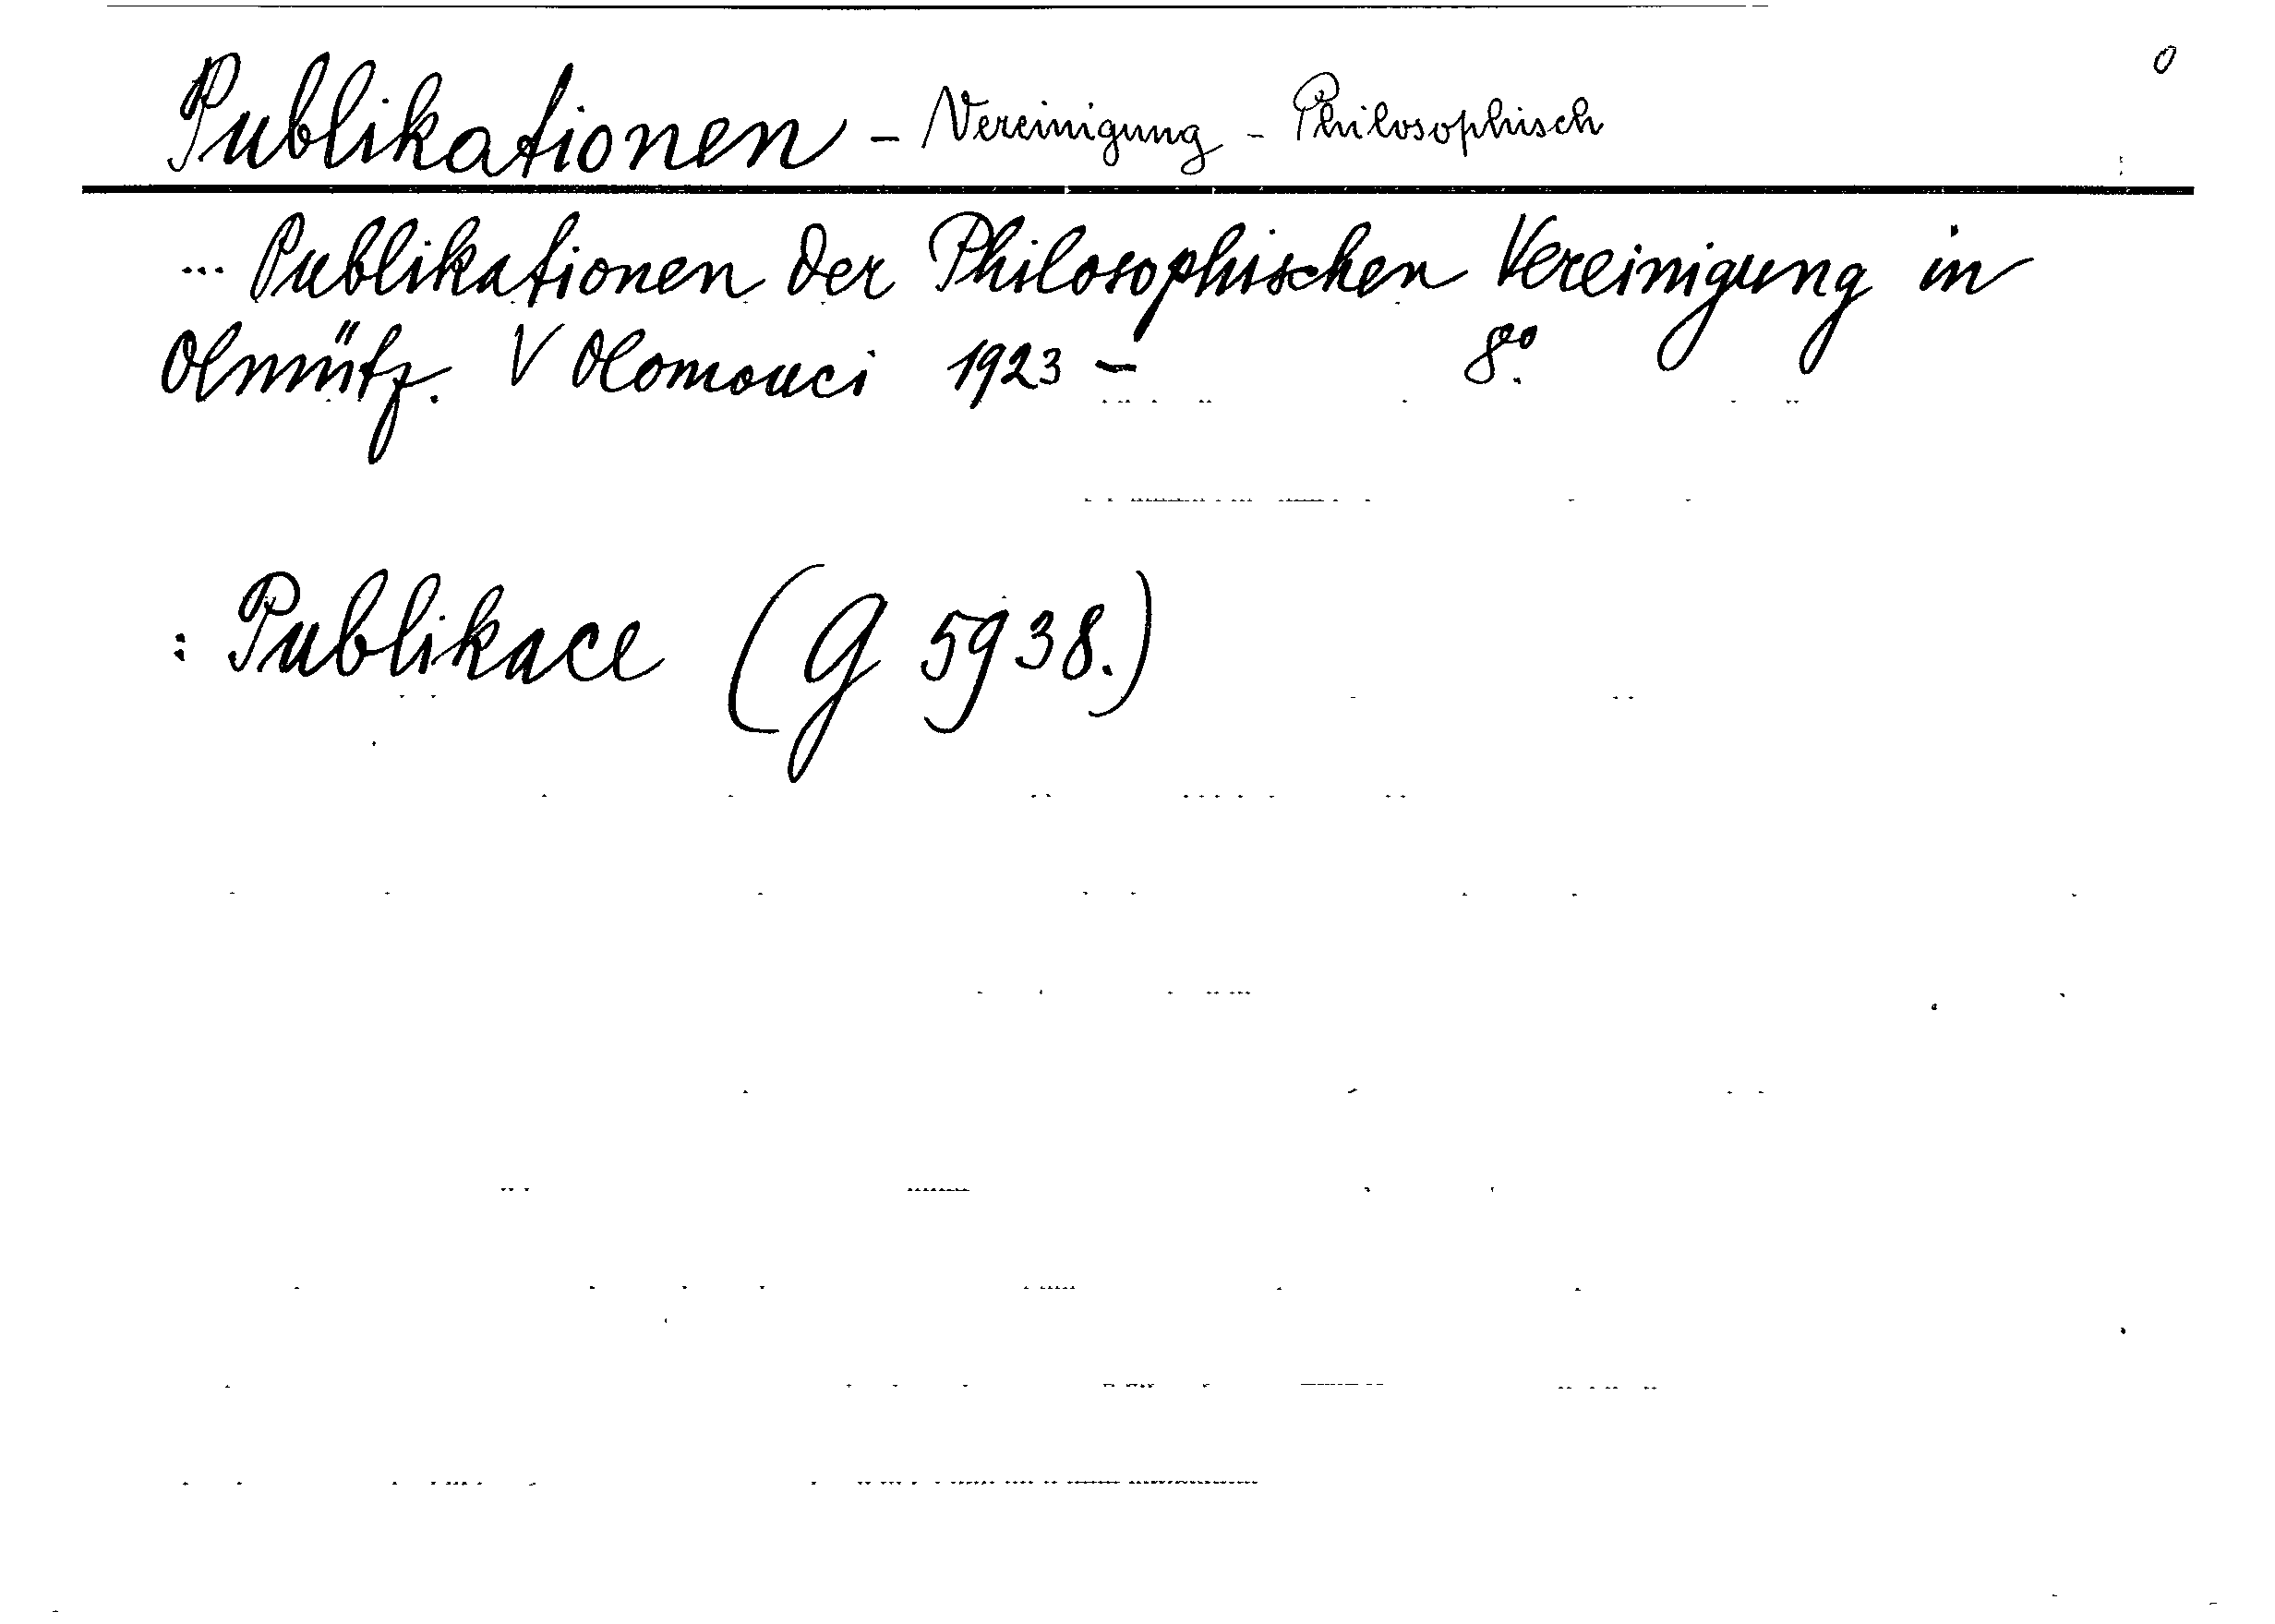 0
Publikationen - Vereinigung - Philosophisch
... Publikationen der Philosophischen Vereinigung in
Olmütz. V Olomouci 1923 - 8°.
: Publikace (G 5938.)